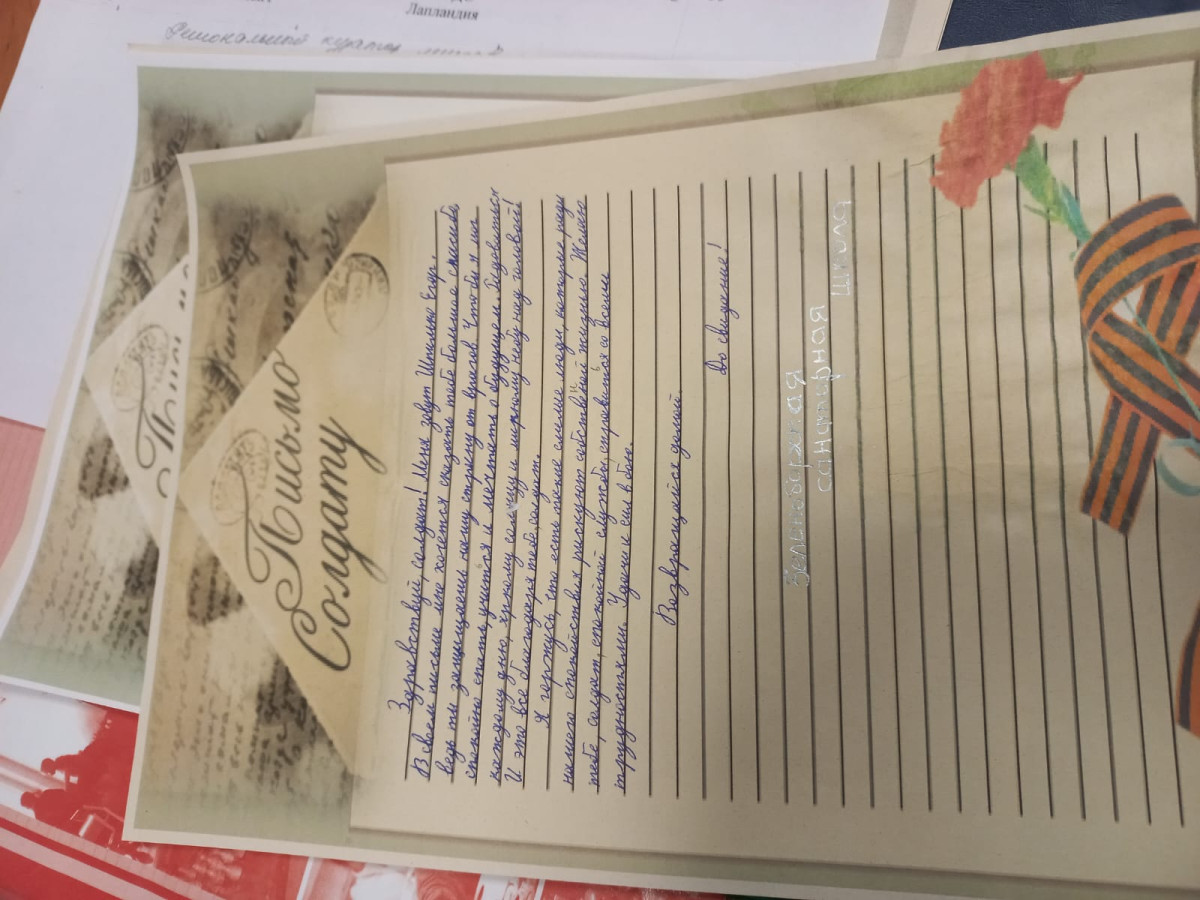 Лапландия
Письмо
Солдату
Здравствуй, солдат! Меня зовут Егор.
В своем письме мне хочется сказать тебе большое спасибо,
ведь ты защищаешь нашу страну от врагов. Чтобы я мог
спокойно спать, учиться и мечтать о будущем. Радоваться
каждому дню, яркому солнцу и мирному небу над головой!
И это все благодаря тебе, солдат.
Я горжусь, что есть такие смелые люди, которые ради
нашего спокойствия рискуют собственной жизнью. Желаю
тебе, солдат, спокойной службы, справиться со всеми
трудностями. Удачи и сил в бою.
Возвращайся домой.
До свидание!
санаторная